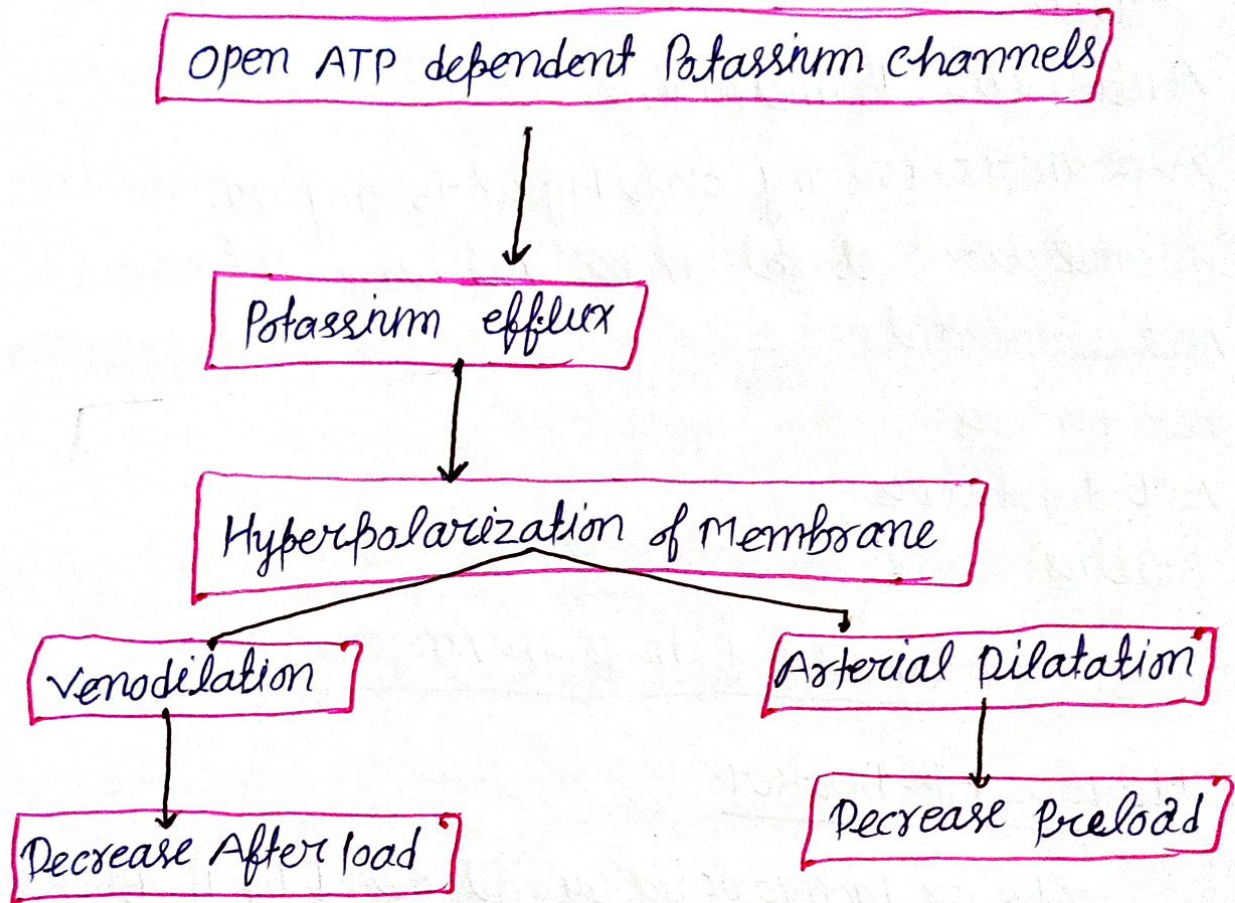 Open ATP dependent Potassium channels
Potassium efflux
Hyperpolarization of Membrane
Venodilation
Arterial Dilatation
Decrease After load
Decrease Preload